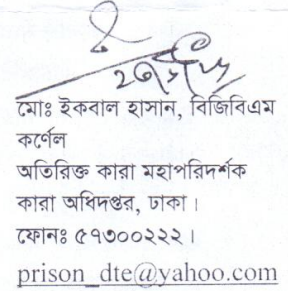 মোঃ ইকবাল হাসান, বিজিবিএম
কর্ণেল
অতিরিক্ত কারা মহাপরিদর্শক
কারা অধিদপ্তর, ঢাকা।
ফোনঃ ৫৭৩০০২২২।
prison_dte@yahoo.com